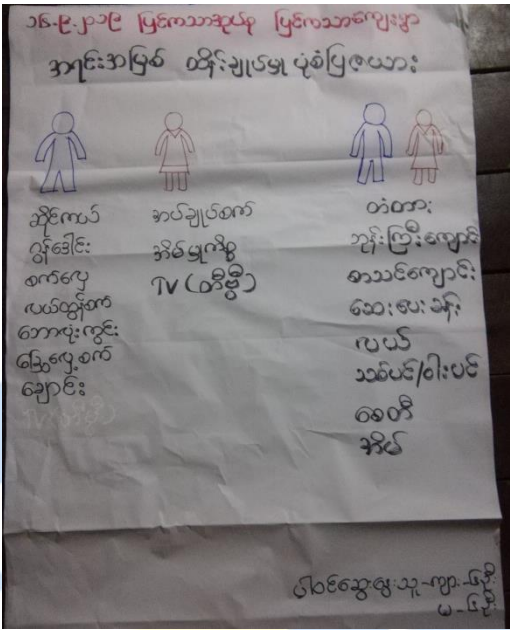 ၁၆-၉-၂၀၁၉ ပြင်ကသာအုပ်စု ပြင်ကသာကျေးရွာ
အရင်းအမြစ် ထိန်းချုပ်မှု ပုံစံပြဇယား
ဆိုင်ကယ်
ဂွန်ဒေါင်း
စက်လှေ
လယ်ထွန်စက်
ဘောလုံးကွင်း
ခြွေလှေ့စက်
ချောင်း
TV (တီဗွီ)
အပ်ချုပ်စက်
အိမ်မှုကိစ္စ
TV (တီဗွီ)
တံတား
ဘုန်းကြီးကျောင်း
စာသင်ကျောင်း
ဆေးပေးခန်း
လယ်
သစ်ပင်/ဝါးပင်
စေတီ
အိမ်
ပါဝင်ဆွေးနွေးသူ-ကျား-၄ဦး
မ-၄ဦး